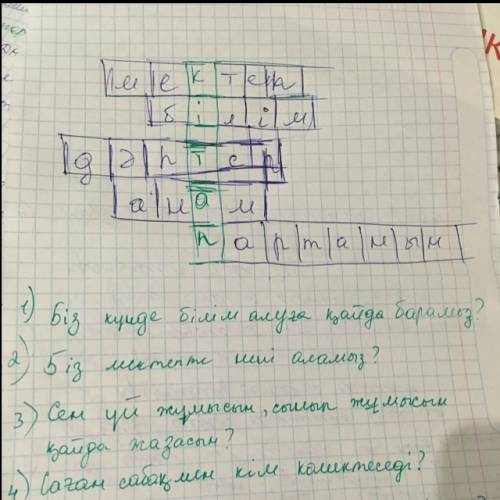 мектеп
білім
дәптер
анам
партамын
1) Біз күнде білім алуға қайда барамыз?
2) Біз мектепте нені аламыз?
3) Сен үй жұмысын, сынып жұмысын
қайда жазасын?
4) Саған сабақпен кім көмектеседі?